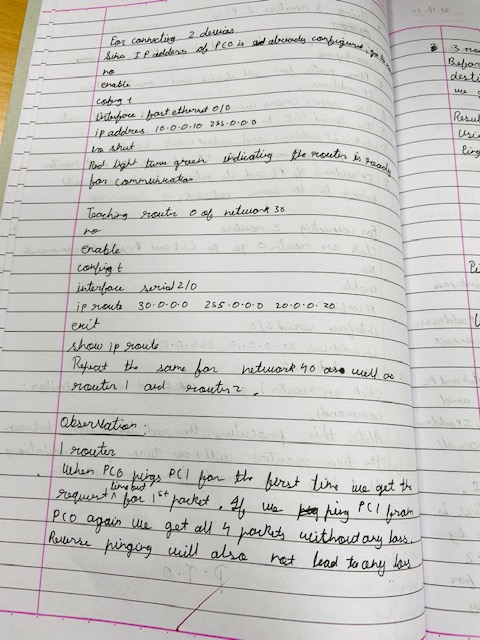 For connecting 2 devices
Since IP address of PC0 is already configured, go to
no
enable
config t
interface fast ethernet 0/0
ip address 10.0.0.10 255.0.0.0
no shut
Red light turns green indicating the router is ready
for communication
Teaching router 0 of network 30
no
enable
config t
interface serial 2/0
ip route 30.0.0.0 255.0.0.0 20.0.0.20
exit
show ip route
Repeat the same for network 40 as well as
router 1 and router 2.
Observation:
1 router
When PC0 pings PC1 for the first time we get the
request timeout for 1st packet. If we ping PC1 from
PC0 again we get all 4 packets without any loss.
Reverse pinging will also not lead to any loss
3 rou
Befor
desti
we
Resul
Usin
Ping